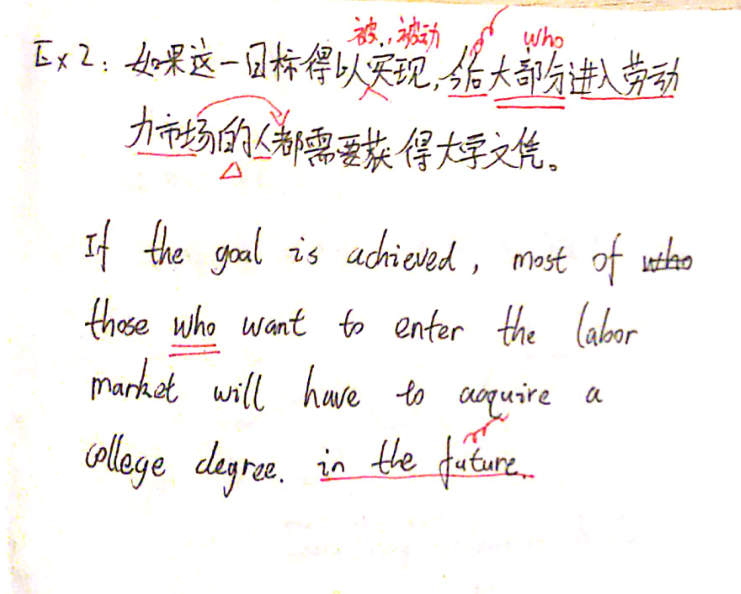 被,被动 who
Ex2: 如果这一目标得以实现,今后大部分进入劳动
力市场的人都需要获得大学文凭。
If the goal is achieved, most of who
those who want to enter the labor
market will have to acquire a
college degree. in the future.